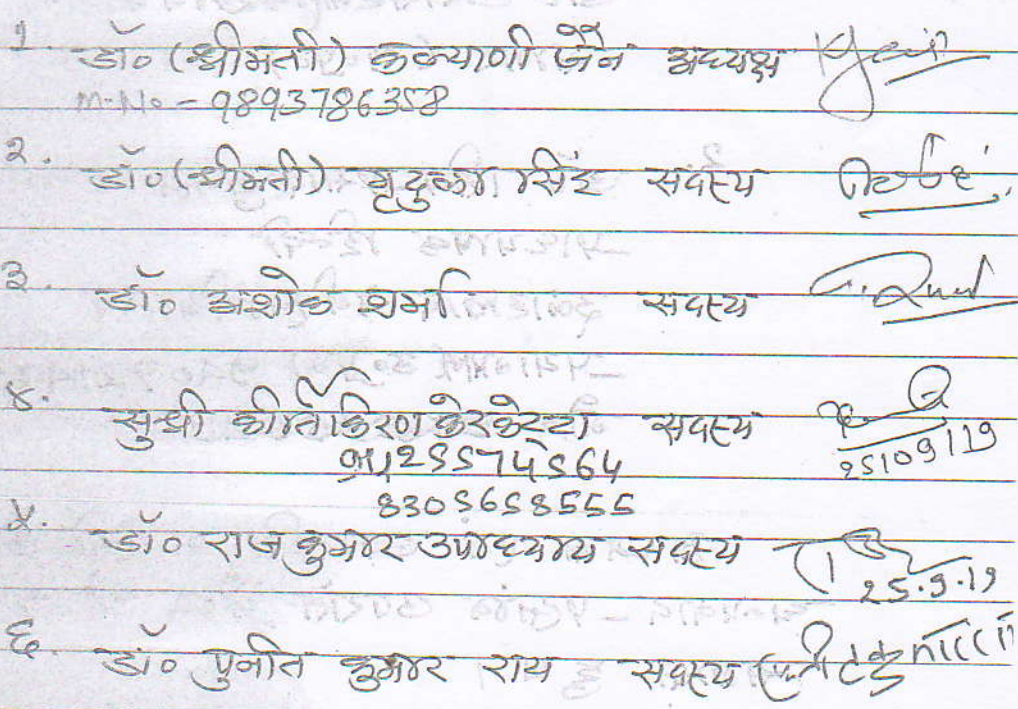 १. डॉ० (श्रीमती) कल्याणी जैन अध्यक्ष KJain
M.No - 9893786358
२. डॉ० (श्रीमती) मृदुला सिंह सदस्य
३. डॉ० अशोक शर्मा सदस्य
४. सुश्री कीर्ति किरण केरकेट्टा सदस्य
25109119
8305658555
५. डॉ० राजकुमार उपाध्याय सदस्य
25.9.19
६. डॉ० पुनीत कुमार राय सदस्य